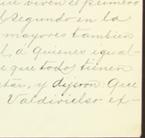 ue viven el primero
Segundo en la
mayores tambien
a quienes igual-
e que todos tienen
tar, y dijeron: Que
Valdivielso ex-